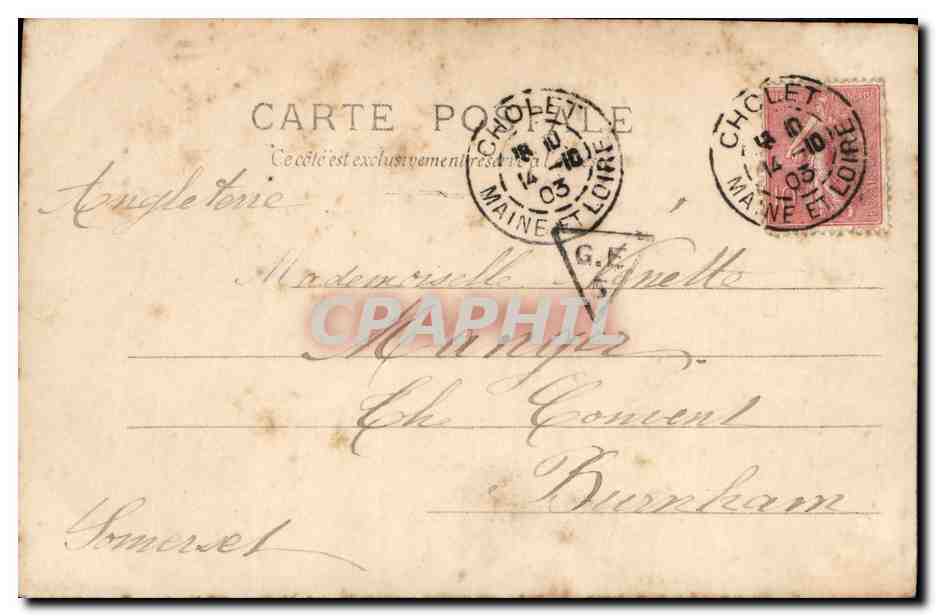 CARTE POSTALE
Ce côté est exclusivement réservé à
CHOLET
10
14 -10
03
MAINE ET LOIRE
CHOLET
10
14 -10
03
MAINE ET LOIRE
Angleterre
G.E
5
Mademoiselle
CPAPHIL
The Convent
Burnham
Somerset